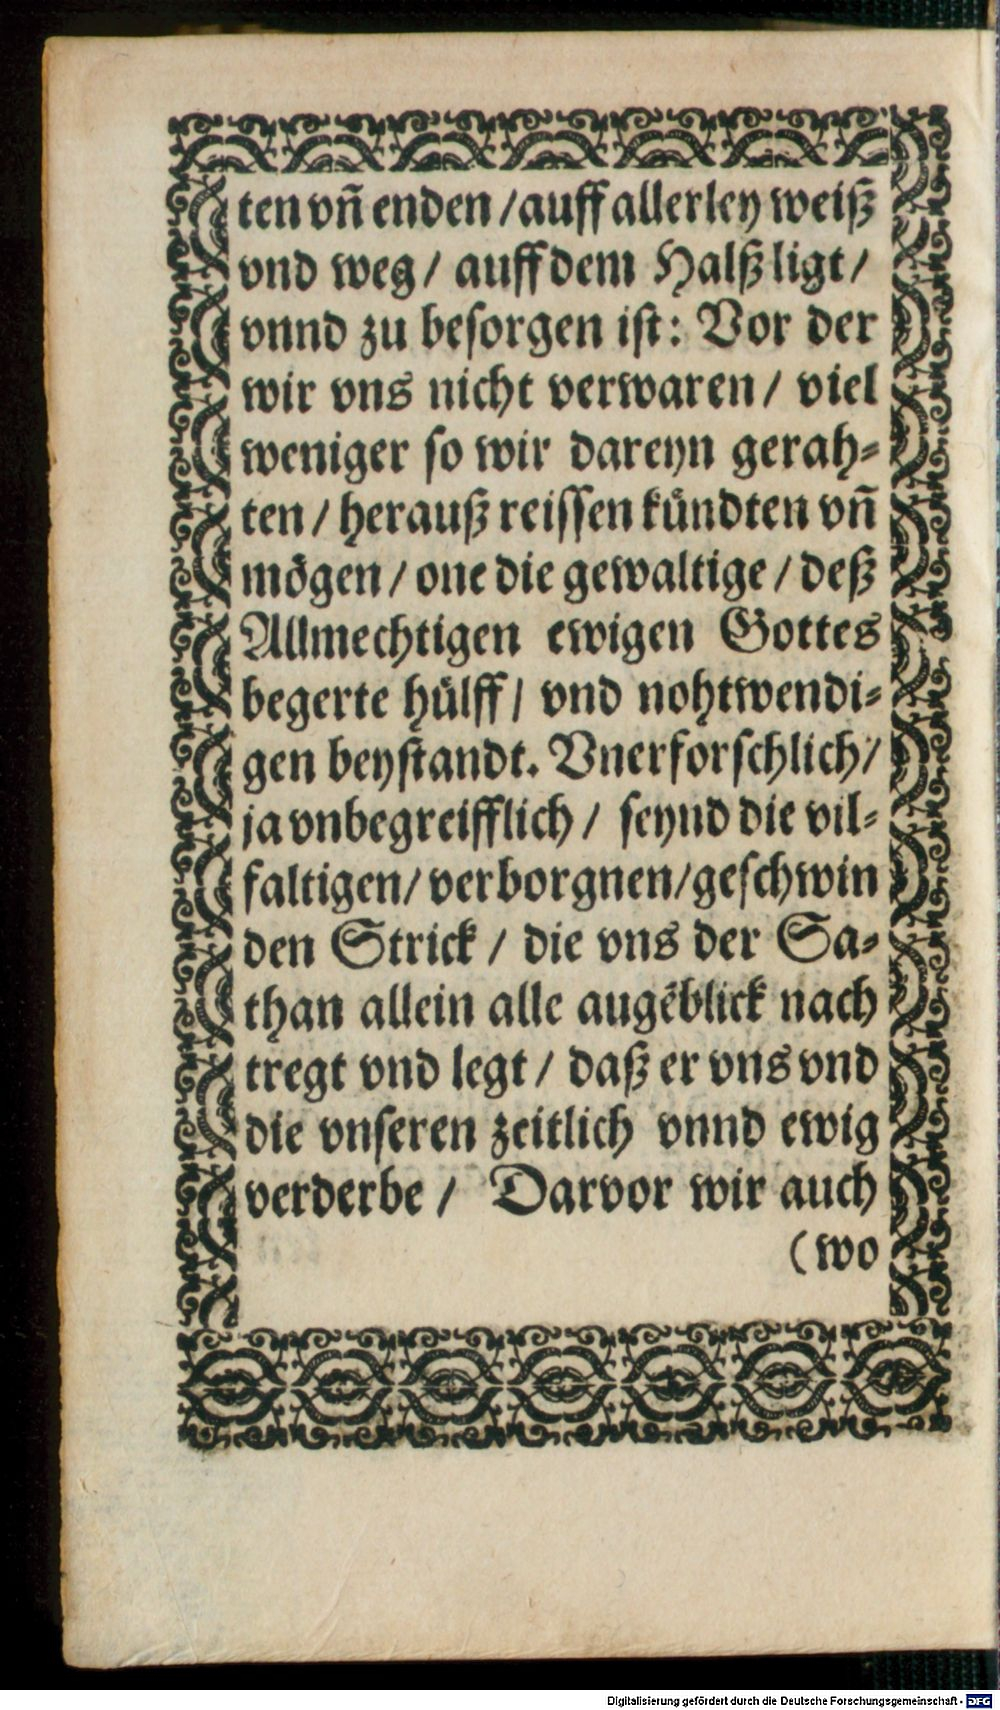 ten vñ enden /auff allerley weiß
vnd weg / auff dem Halß ligt /
vnnd zu besorgen ist: Vor der
wir vns nicht verwaren / viel
weniger so wir dareyn gerah⸗
ten / herauß reissen kündten vñ
mögen / one die gewaltige / deß
Allmechtigen ewigen Gottes
begerte hülff / vnd nohtwendi⸗
gen beystandt. Vnerforschlich /
ja vnbegreifflich / seynd die vil⸗
faltigen / verborgnen /geschwin
den Strick / die vns der Sa⸗
than allein alle augẽblick nach
tregt vnd legt / daß er vns vnd
die vnseren zeitlich vnnd ewig
verderbe / Darvor wir auch
(wo
Digitalisierung gefördert durch die Deutsche Forschungsgemeinschaft - DFG